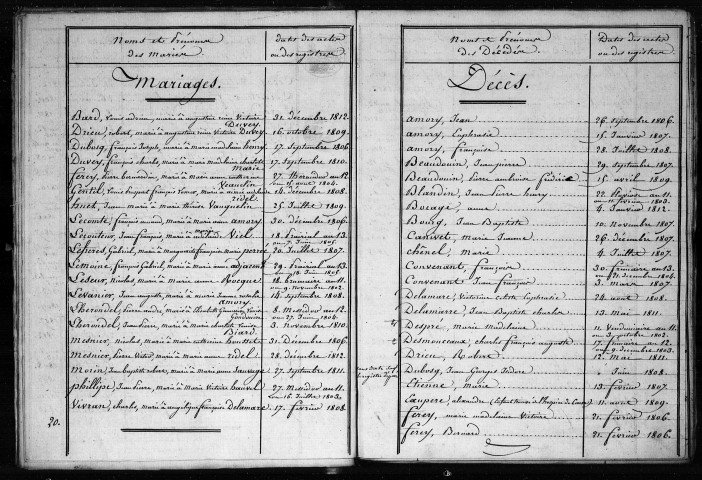 Noms et Prénoms des Mariés
Dates des actes ou des registres
Mariages.
Bard, Louis adrien, marié à augustine reine Victoire Duvey 31 décembre 1812.
Drieu, robert, marié à augustine reine Victoire Duvey 16 octobre 1809.
Dubosq, françois Joseph, marié à marie madelaine henry 17 septembre 1806
Duvey, françois charles, marié à marie madelaine charlotte marie 17 septembre 1810.
ferey, pierre bernardin, marié à marie anne catherine Vauclin 27 thermidor an 12 ou 15 août 1804.
Gentil, Louis auguste françois, marié à marie adelaide ridel 16 décembre 1808.
huet, Jean marie à marie thérèse Vauquelin 25 Juillet 1809.
Lecomte, françois amand, marié à Marie anne amory 30 décembre 1806.
Lecouteur, Jean françois, marié à Viel 18 Prairial an 13. ou 7 Juin 1805.
Lefièvre, Gabriel, marié à marguerite françoise marie perrée 20 Juillet 1807.
Lemoine, françois Gabriel, marié à marie anne 29 Prairial an 13. ou 18 Juin 1805.
Leseur, nicolas, marié à marie anne Rocque 18 brumaire an 11 ou 9 novembre 1802.
Levanier, Jean auguste, marié à marie Jeanne rosalie Amory 14 septembre 1808.
Lherondel, pierre andré, marié à charlotte Louise 8 Messidor an 12 ou 27 Juin 1804
Lherondel, Jean pierre, marié à marie charlotte Louise Biard 3 novembre 1810.
mesnier, nicolas, marié à marie catherine 31 Décembre 1806.
mesnier, pierre Victor, marié à Marie anne ridel 28 décembre 1812.
Morin, Jean baptiste robert, marié à marie anne Sauvage 27 septembre 1811.
phillipe, Jean pierre, marié à Marie Victoire hauvel 27 Messidor an 11. ou 16 Juillet 1803.
Vivran, charles, marié à angélique françoise Delamare 17 février 1808.
20.
Noms et Prénoms des Décédés
Dates des actes ou des registres
Décès.
Amory, Jean 26 septembre 1806.
amory, Euphrasie 15 Janvier 1807.
amory, françoise 28 Juillet 1808.
Beaudouin, Jean pierre 29 septembre 1807.
Beaudouin, pierre ambroise frédéric 15 avril 1809.
Blandin, Jean Pierre henry 22 Pluviôse an 11. ou 11 février 1803.
Bocage, anne 4 Janvier 1812.
Bourg, Jean Baptiste 10 novembre 1807.
Canivet, marie Jeanne 26 décembre 1807.
chenel, marie 4 Juillet 1807.
Convenant, françoise 30 frimaire an 13 ou 21 décembre 1804.
Convenant, Jean françois 3 mars 1807.
Delamare, Victorine céleste Euphrasie 24 août 1808.
Delamare, Jean Baptiste charles 13 mai 1811.
Despré, marie madelaine 11 Vendémiaire an 11. ou 3 octobre 1802.
Desmonceaux, charles françois auguste 17 frimaire an 12 ou 9 décembre 1803.
Drieu, Robert 12 mai 1811.
Dubosq, Jean Georges Isidore Juin 1808.
Etienne, Marie 13 février 1807.
Exupère, alexandre 11 août 1809.
ferey, marie madelaine Victoire 21 février 1806.
ferey, Bernard 21 février 1806.